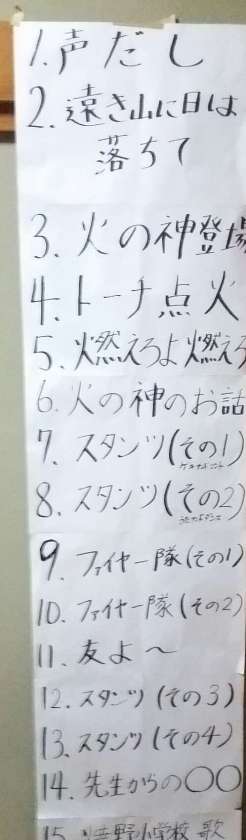 1. 声だし
2. 遠き山に日は
落ちて
3. 火の神登場
4. トーチ点火
5. 燃えろよ燃えろ
6. 火の神のお話
7. スタンツ(その1)
8. スタンツ(その2)
9. ファイヤー隊(その1)
10. ファイヤー隊(その2)
11. 友よ〜
12. スタンツ(その3)
13. スタンツ(その4)
14. 先生からの〇〇
15. 野小学校 歌